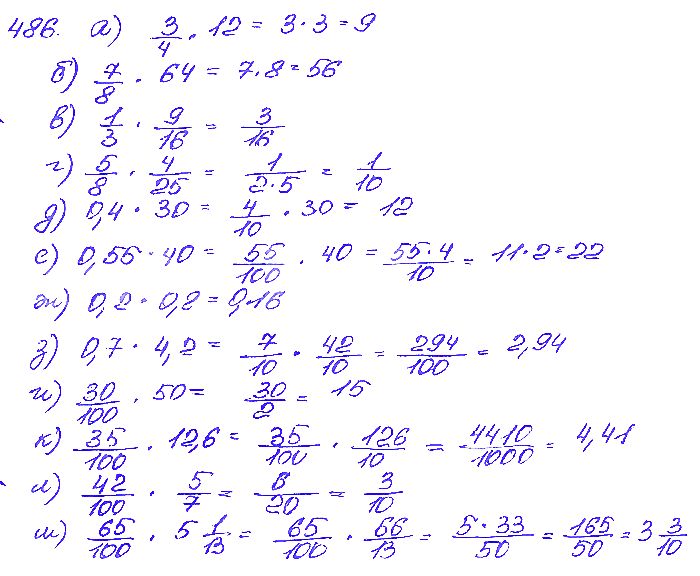 486. а) 3/4 · 12 = 3·3 = 9
б) 7/8 · 64 = 7·8 = 56
в) 1/3 · 9/16 = 3/16
г) 5/8 · 4/25 = 1/2·5 = 1/10
д) 0,4 · 30 = 4/10 · 30 = 12
е) 0,55 · 40 = 55/100 · 40 = 55·4/10 = 11·2 = 22
ж) 0,2 · 0,8 = 0,16
з) 0,7 · 4,2 = 7/10 · 42/10 = 294/100 = 2,94
и) 30/100 · 50 = 30/2 = 15
к) 35/100 · 12,6 = 35/100 · 126/10 = 4410/1000 = 4,41
л) 42/100 · 5/7 = 6/20 = 3/10
м) 65/100 · 5 1/13 = 65/100 · 66/13 = 5·33/50 = 165/50 = 3 3/10